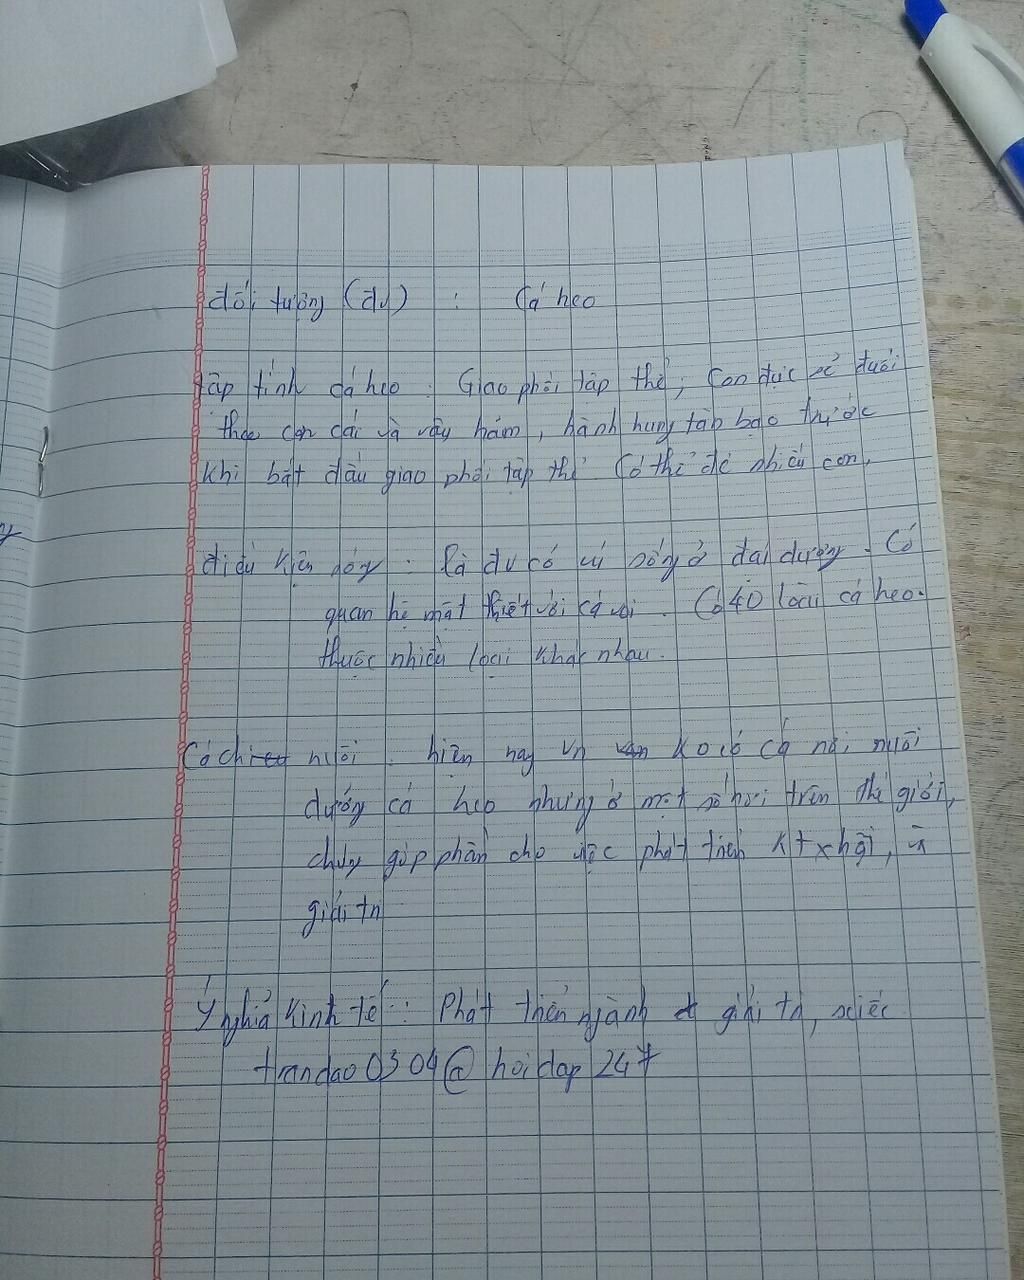 đối tượng (đv) : Cá heo
tập tính cá heo : Giao phối tập thể, con đực sẽ đuổi
theo con cái và vây hãm, hành hung tàn bạo trước
khi bắt đầu giao phối tập thể Có thể đẻ nhiều con.
điều kiện sống : là đv có vú sống ở đại dương. Có
quan hệ mật thiết với cá voi. Có 40 loài cá heo.
thuộc nhiều loài khác nhau.
Cách nuôi : hiện nay vn ko có cá nơi nuôi
dưỡng cá heo nhưng ở một số nơi trên thế giới,
chúng góp phần cho việc phát triển kt xhội, và
giải trí
Ý nghĩa kinh tế : Phát triển ngành giải trí, xiếc
trandao0304@hoidap247